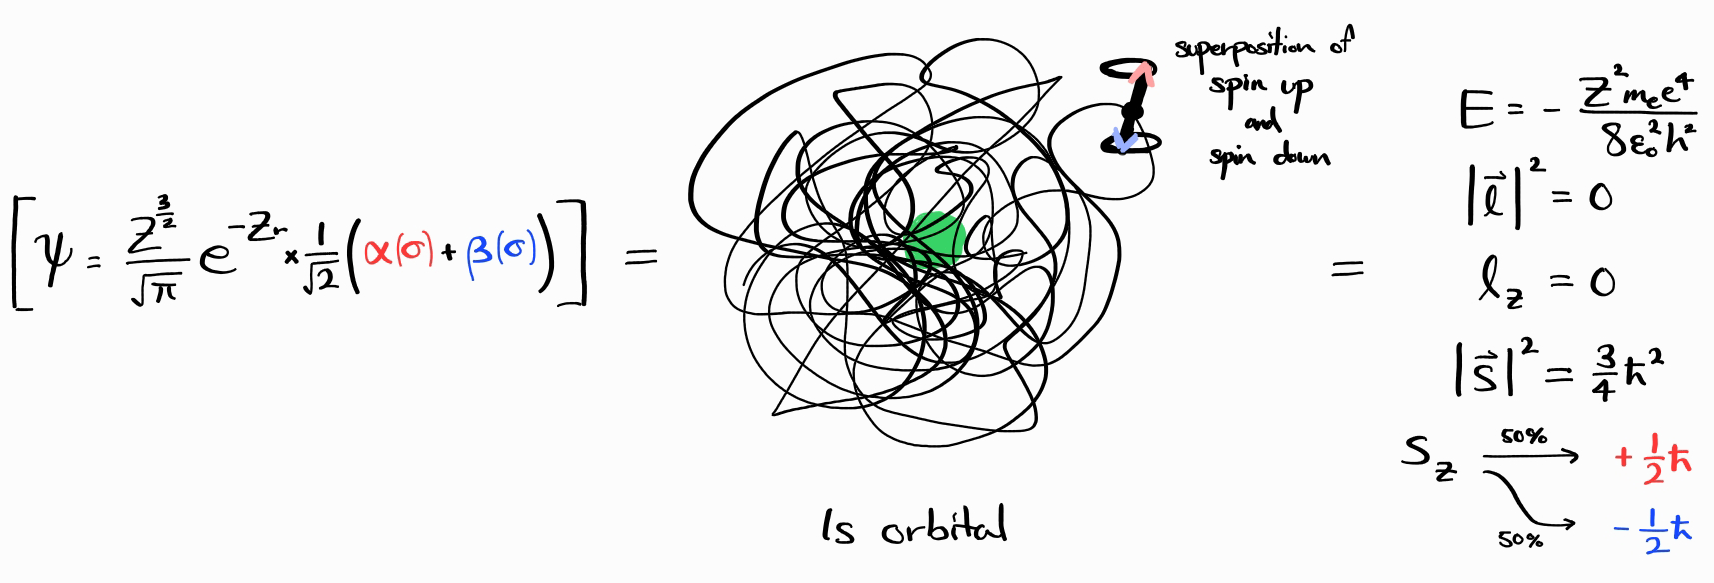 [ψ = Z^{3/2}/√π e^{-Zr} × 1/√2 (α(σ) + β(σ))] =
superposition of
spin up
and
spin down
1s orbital
=
E = - Z²mₑe⁴/8ε₀²h²
|l⃗|² = 0
l_z = 0
|s⃗|² = 3/4 ħ²
S_z 50% + 1/2 ħ
50% - 1/2 ħ